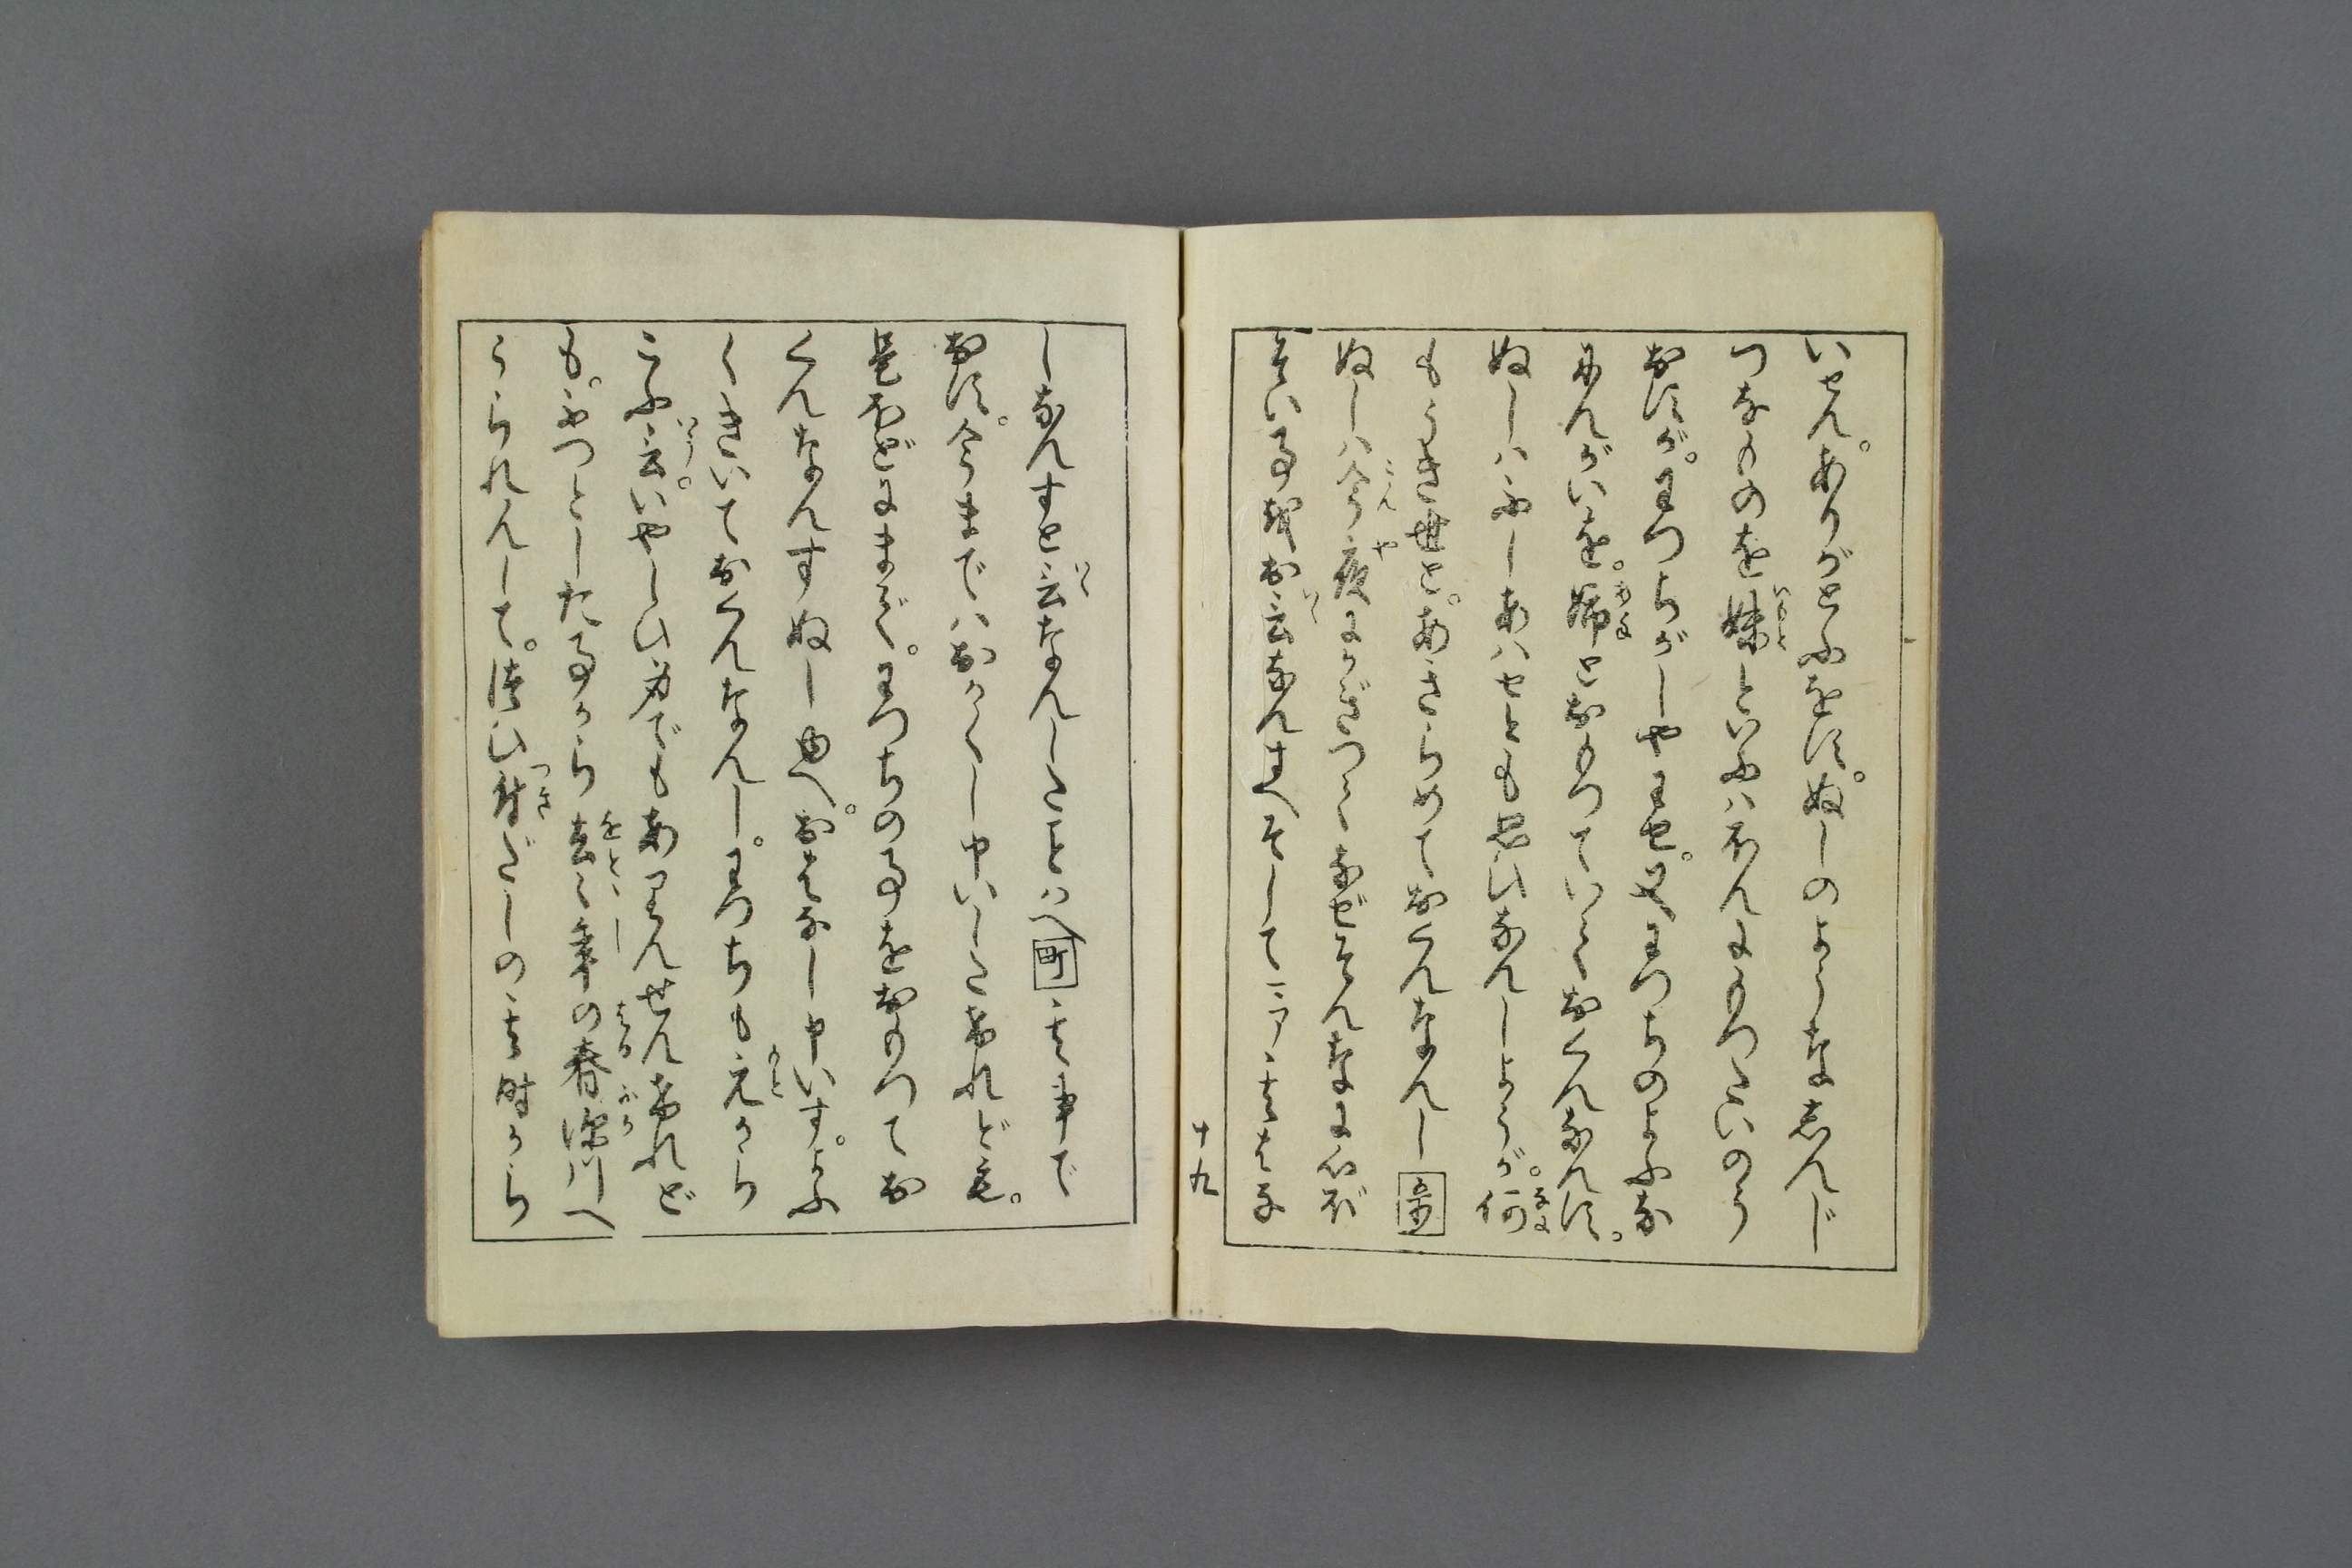 いせん。ありがとふをす。ぬしのよふなしんじ
つなものを妹といふハほんにもつたいのう
おすが。わつちがしやわせ。又わつちのよふな
ものがいを。姉とおもつていておくんなんす。
ぬしハふしあハせとも思ひなんしよふが。何
もうき世と。あきらめておくんなんし
ぬしハ今夜にかぎつてなぜそんなに心ぼ
そい事をお云なんすへそしてマア其よふ
十九
しなんすと云なんしたことハへ町其事で
おす。今まではおかくし申いしたけれども。
是ほどにまで。わつちの事をおもつてお
くんなんすぬしゆへ。おはなし申いす。よふ
くきいておくんなんし。わつちも元から
こふ云いやしひ身でもありんせんけれど
も。ふつとした事から去々年の春深川へ
うられんして。つき出しの其時から